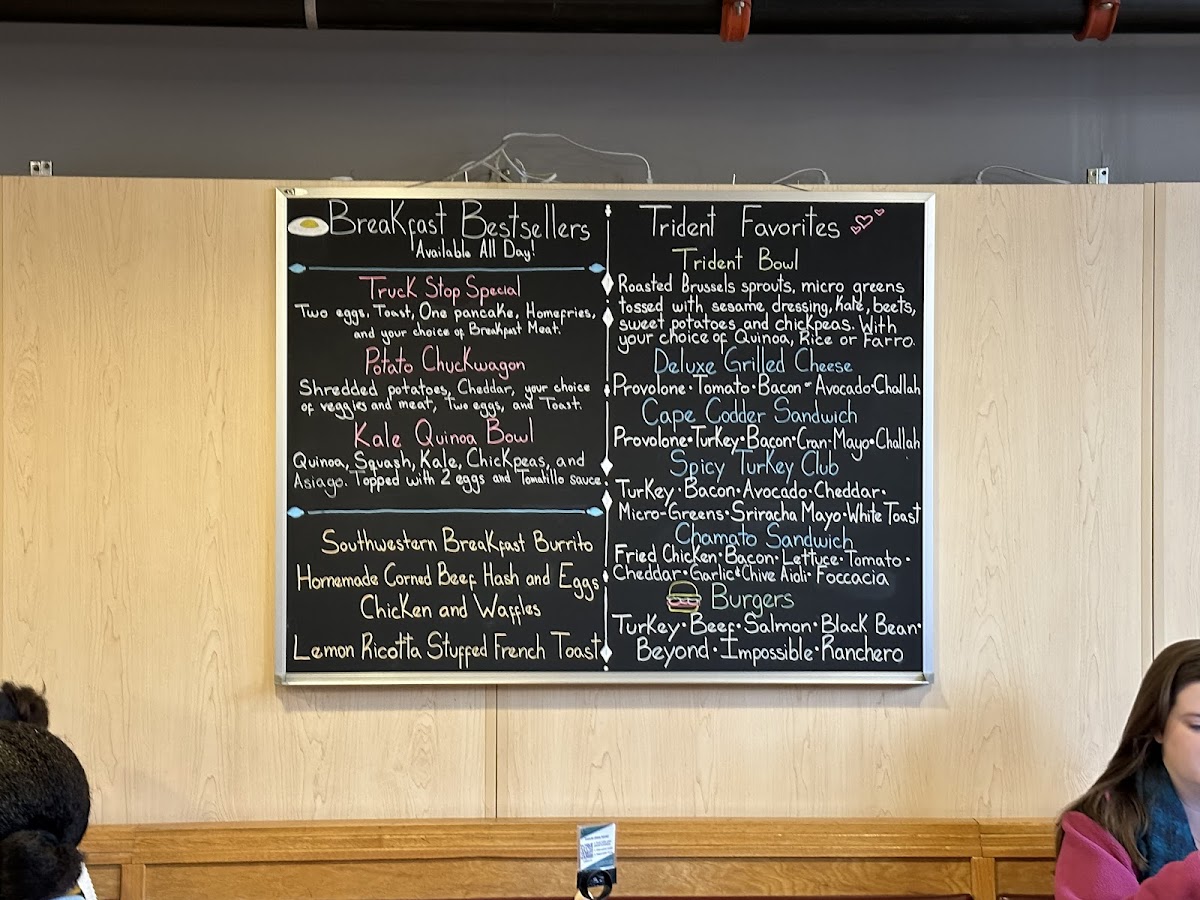 Breakfast Bestsellers
Available All Day!
Truck Stop Special
Two eggs, Toast, One pancake, Homefries,
and your choice of Breakfast Meat.
Potato Chuckwagon
Shredded potatoes, Cheddar, your choice
of veggies and meat, Two eggs, and Toast.
Kale Quinoa Bowl
Quinoa, Squash, Kale, Chickpeas, and
Asiago. Topped with 2 eggs and Tomatillo sauce
Southwestern Breakfast Burrito
Homemade Corned Beef Hash and Eggs
Chicken and Waffles
Lemon Ricotta Stuffed French Toast
Trident Favorites
Trident Bowl
Roasted Brussels sprouts, micro greens
tossed with sesame dressing, kale, beets,
sweet potatoes and chickpeas. With
your choice of Quinoa, Rice or Farro.
Deluxe Grilled Cheese
Provolone • Tomato • Bacon or Avocado • Challah
Cape Codder Sandwich
Provolone • Turkey • Bacon • Cran-Mayo • Challah
Spicy Turkey Club
Turkey • Bacon • Avocado • Cheddar •
Micro-Greens • Sriracha Mayo • White Toast
Chamato Sandwich
Fried Chicken • Bacon • Lettuce • Tomato •
Cheddar • Garlic & Chive Aioli • Foccacia
Burgers
Turkey • Beef • Salmon • Black Bean •
Beyond • Impossible • Ranchero